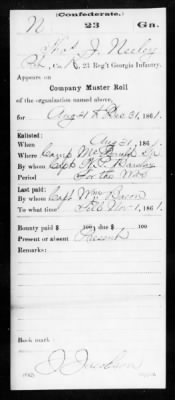 (Confederate.)
N 23 Ga.
Thos J. Neeley
Pvt, Co. K, 23 Reg't Georgia Infantry.
Appears on
Company Muster Roll
of the organization named above,
for Aug 31 to Dec 31, 1861.
Enlisted:
When Aug 31, 1861.
Where Camp McDonald
By whom Capt
Period For the War
Last paid:
By whom Capt Wm Bacon
To what time Nov 1, 1861.
Bounty paid $ 100; due $ 100
Present or absent Present
Remarks:
Book mark:
J. Jacobson